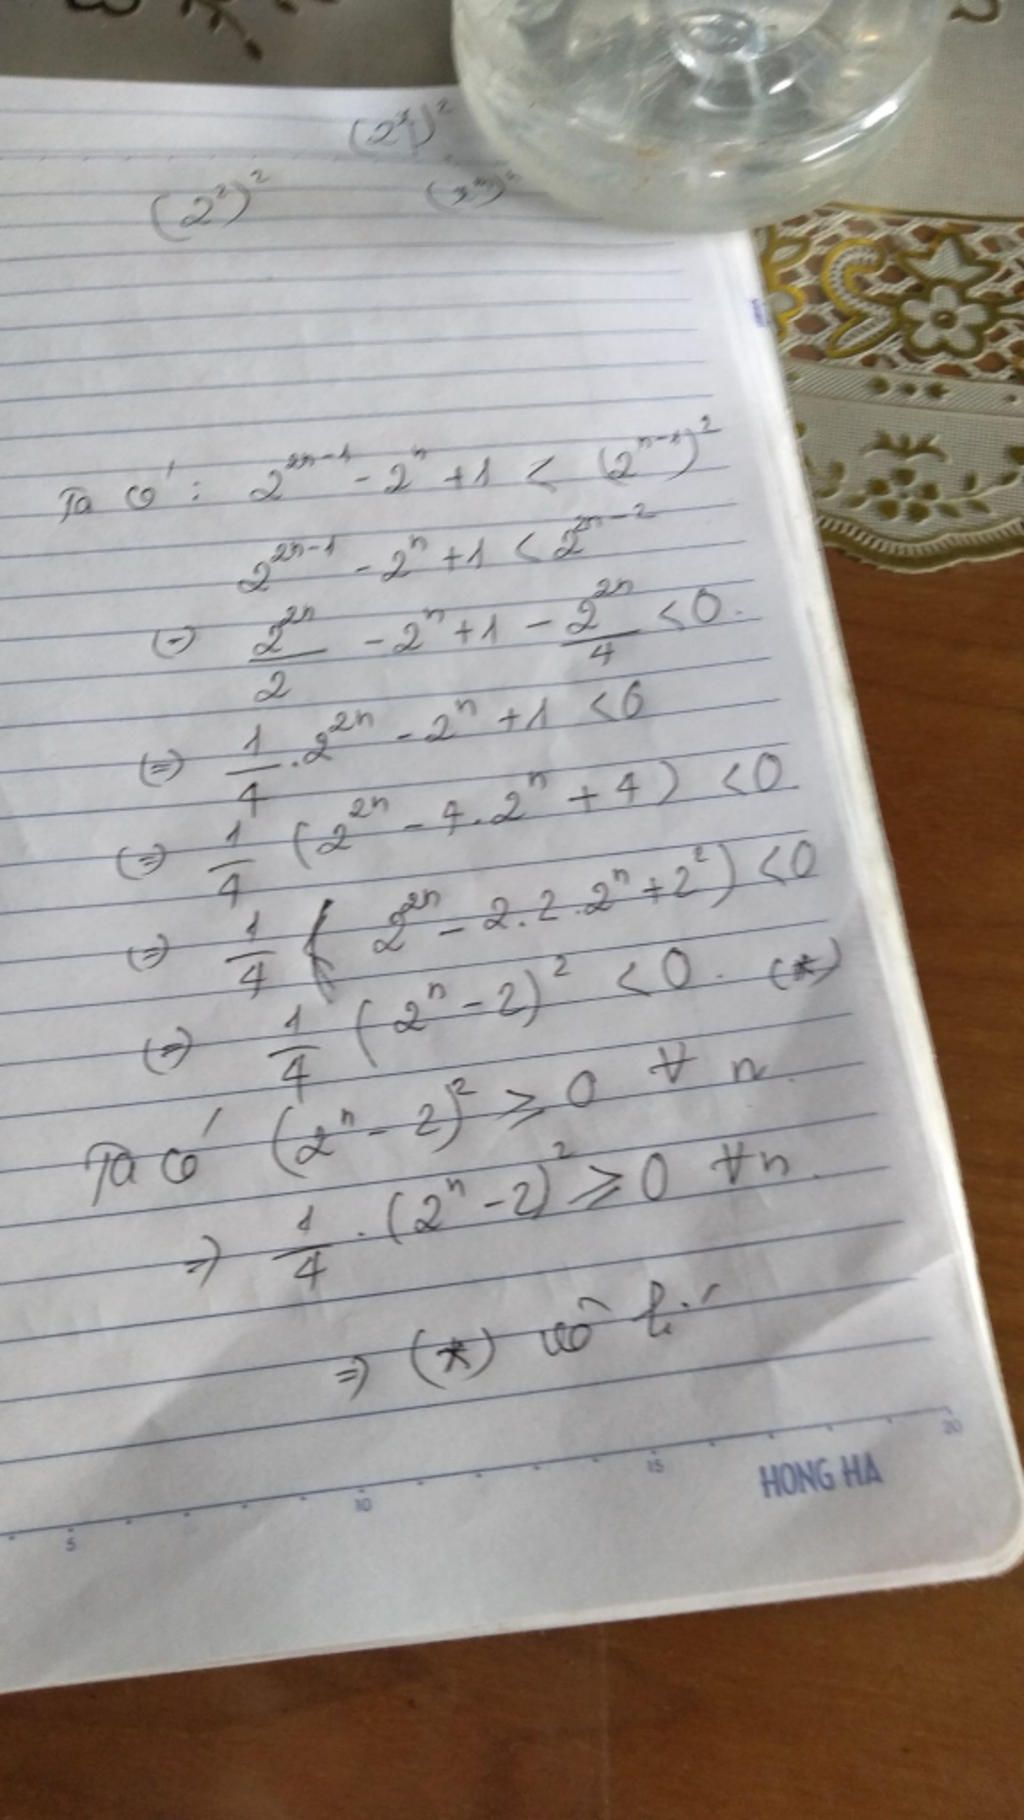 (2^x)^2
(2^2)^2
Ta có: 2^{2n-1} - 2^n + 1 < (2^{n-1})^2
2^{2n-1} - 2^n + 1 < 2^{2n-2}
(=) \frac{2^{2n}}{2} - 2^n + 1 - \frac{2^{2n}}{4} < 0.
(=) \frac{1}{4} . 2^{2n} - 2^n + 1 < 0
(=) \frac{1}{4} (2^{2n} - 4.2^n + 4) < 0
(=) \frac{1}{4} ( 2^{2n} - 2.2.2^n + 2^2) < 0
(=) \frac{1}{4} (2^n - 2)^2 < 0. (*)
Ta có (2^n - 2)^2 ⩾ 0 ∀ n.
=) \frac{1}{4} . (2^n - 2)^2 ⩾ 0 ∀n.
=) (*) vô lí
5 10 15 20
HONG HA